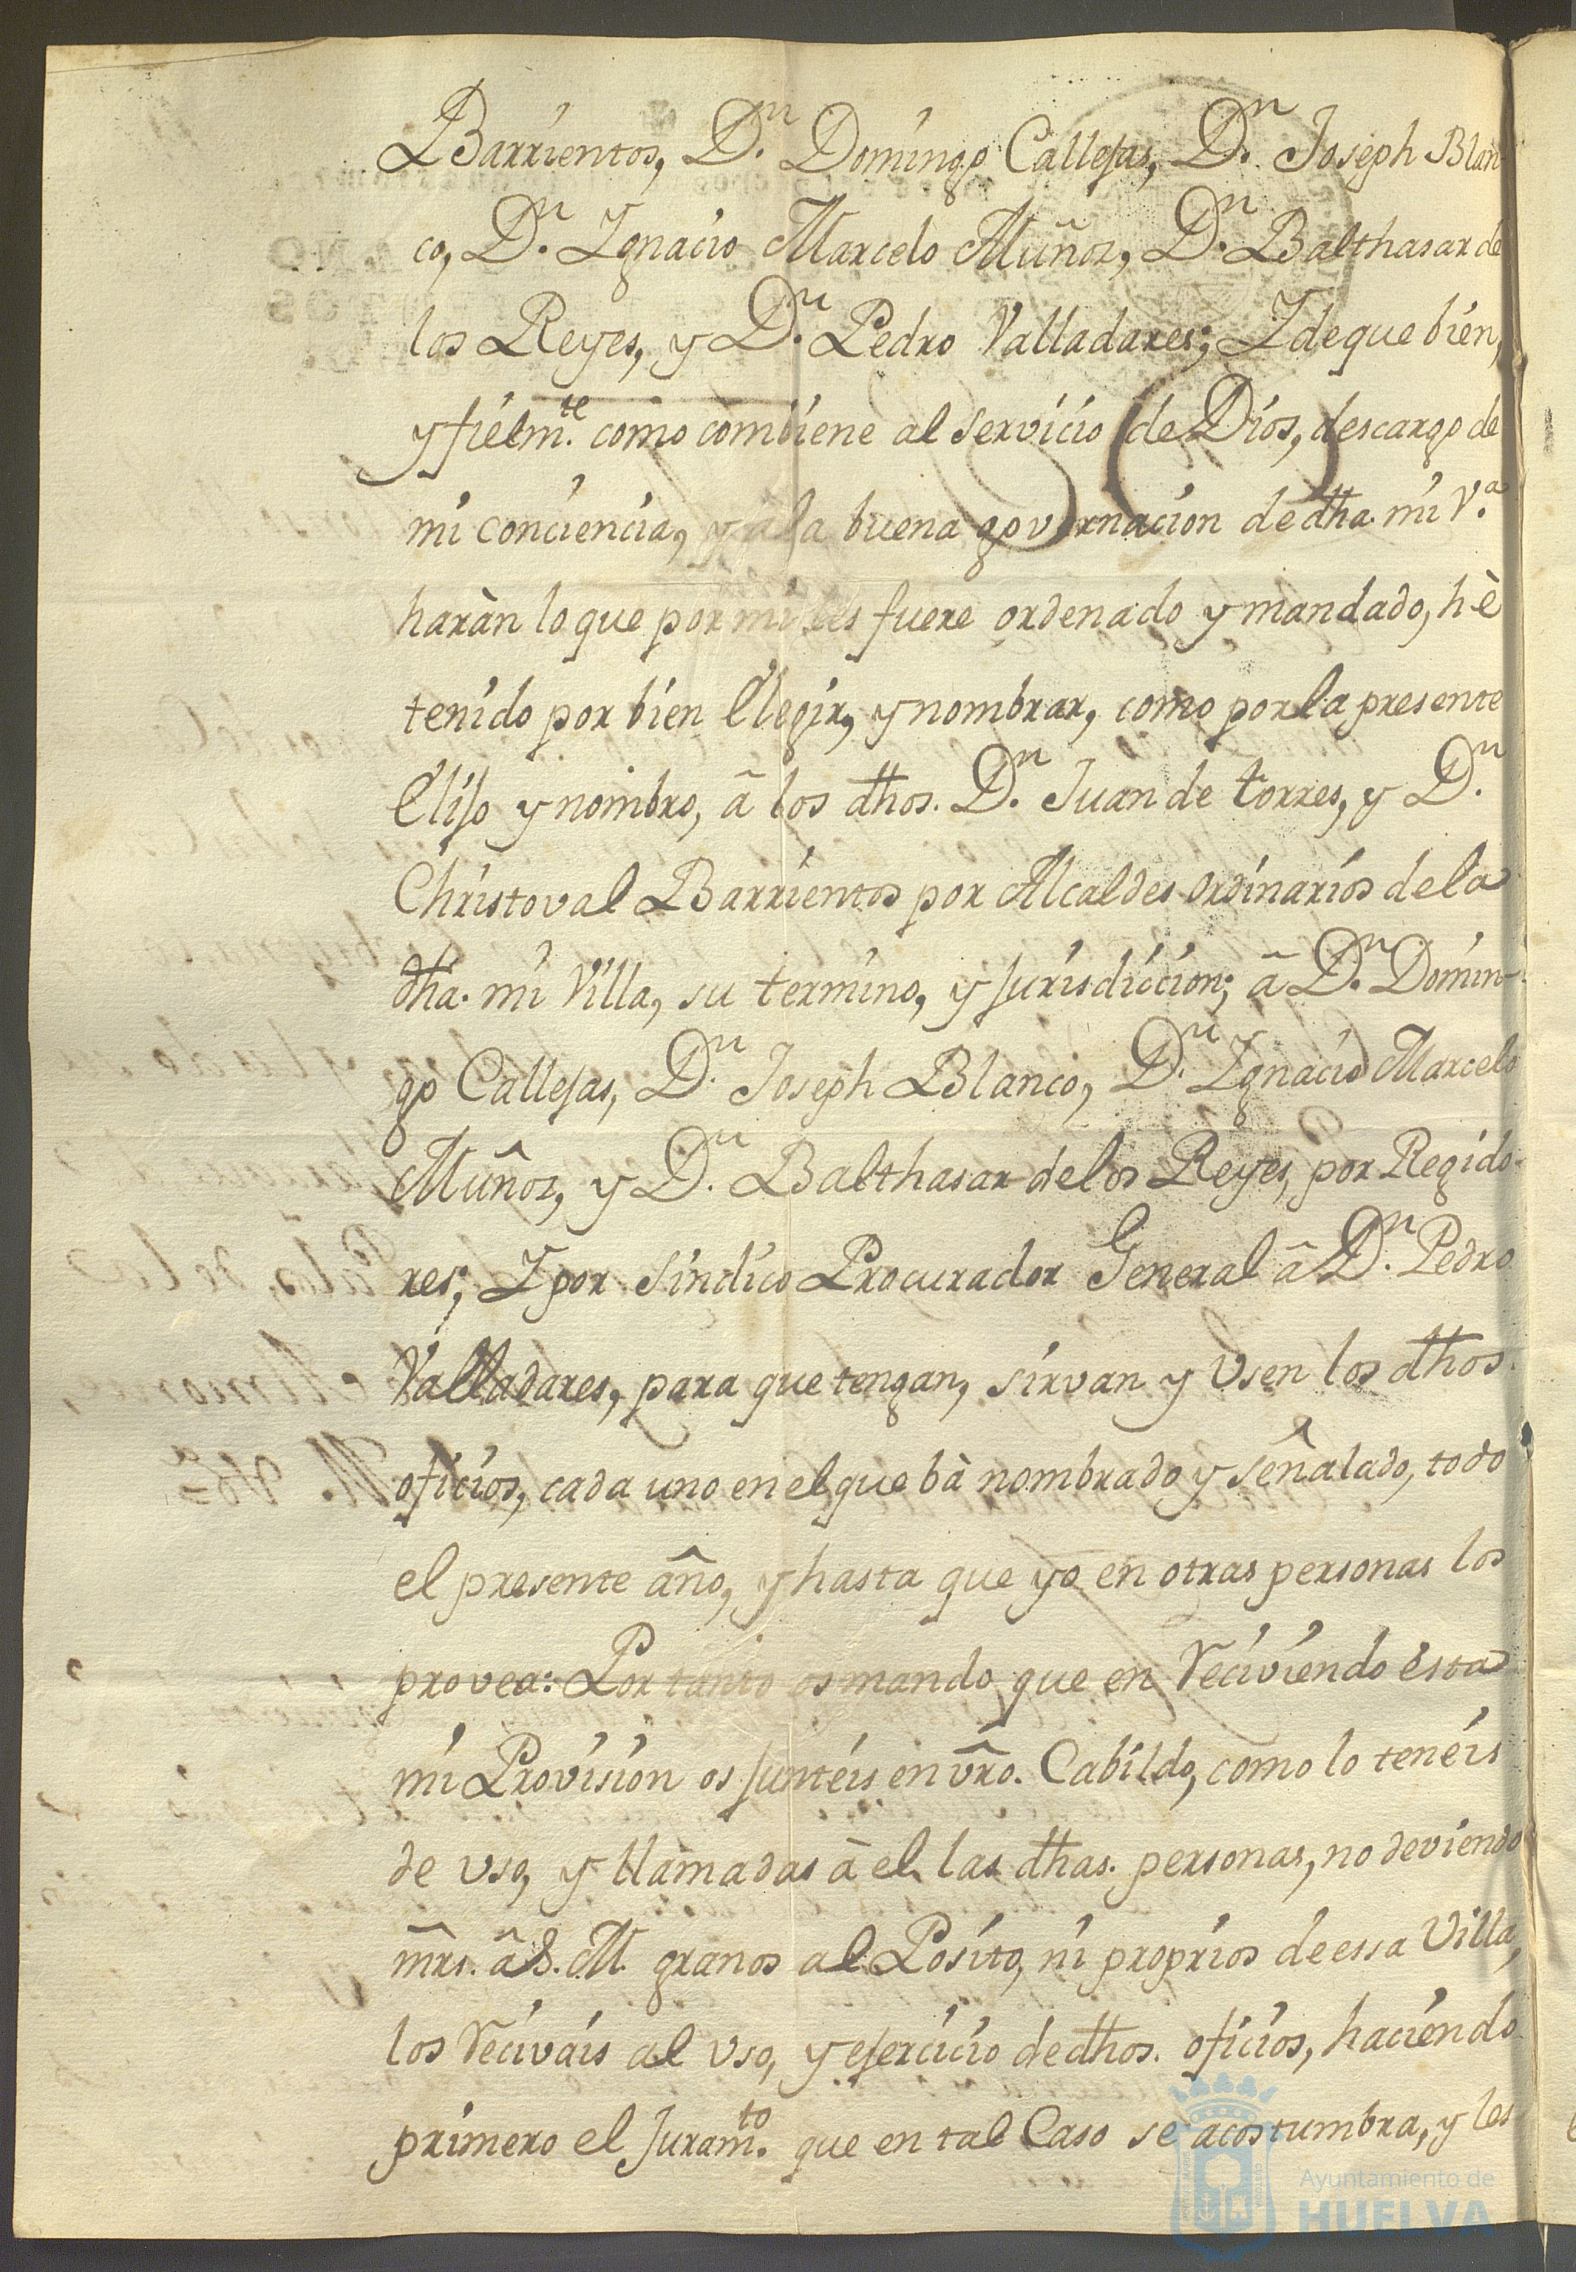 Barrientos, D.n Domingo Callejas, D.n Joseph Blan
co, D.n Ignacio Marcelo Muñoz, D.n Balthasar de
los Reyes, y D.n Pedro Valladares; I de que bien,
y fielm.te como combiene al servicio de Dios, descargo de
mi conciencia, y a la buena governacion de dha. mi V.a
haràn lo que por mi les fuere ordenado y mandado, hè
tenido por bien Elegir, y nombrar, como por la presente
Elijo y nombro, â los dhos. D.n Juan de torres, y D.n
Christoval Barrientos por Alcaldes ordinarios de la
dha. mi Villa, su termino, y jurisdiccion; â D.n Domin-
go Callejas, D.n Joseph Blanco, D.n Ignacio Marcelo
Muñoz, y D.n Balthasar de los Reyes, por Regido-
res; I por Sindico Procurador General â D.n Pedro
Valladares, para que tengan, sirvan y Usen los dhos.
oficios, cada uno en el que bà nombrado y señalado, todo
el presente año, y hasta que yo en otras personas los
provea: Por tanto os mando, que en reciviendo esta
mi Provision os juntéis en vrõ. Cabildo, como lo tenéis
de uso, y llamadas à el las dhas. personas, no deviendo
mrs. â S. M. granos al Posito, ni proprios de essa Villa,
los recivais al Uso, y ejercicio de dhos. oficios, haciendo
primero el Juram.to que en tal Caso se acostumbra, y les
Ayuntamiento de
HUELVA